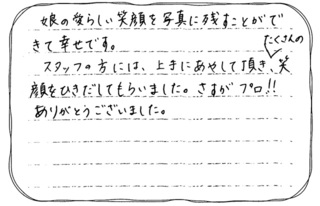 娘の愛らしい笑顔を写真に残すことがで
きて幸せです。
スタッフの方には、上手にあやして頂き、たくさんの笑
顔をひきだしてもらいました。さすがプロ!!
ありがとうございました。